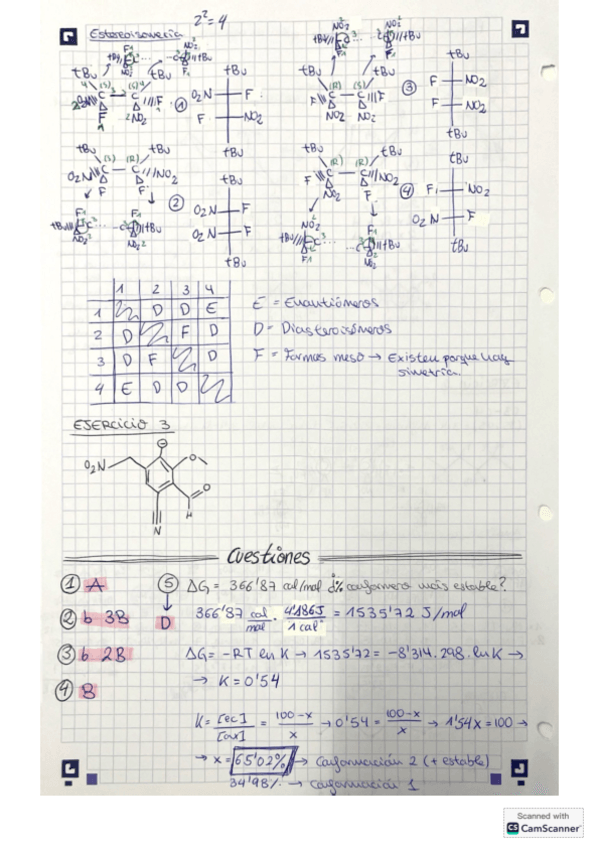 Estereoisomería 2²=4
tBu tBu tBu tBu tBu tBu
(S) (S) (R) (S)
C C C C
F NO2 NO2 NO2
① O2N F
F NO2
tBu
③ F NO2
F NO2
tBu
tBu tBu tBu tBu tBu tBu
(S) (R) (R) (R)
O2N C C NO2 F C C NO2
F F NO2 F
② O2N F
O2N F
tBu
④ F NO2
O2N F
tBu
1 2 3 4
1 D D E
2 D F D
3 D F D
4 E D D
E = Enantiómeros
D = Diasteroisómeros
F = Formas meso → Existen porque hay
simetría.
EJERCICIO 3
O2N O O H N
Cuestiones
① A
② b 3B
③ b 2B
④ B
⑤ ΔG = 366'87 cal/mol ¿% confórmero más estable?
D 366'87 cal/mol · 4'186J/1 cal = 1535'72 J/mol
ΔG = -RT ln K → 1535'72 = -8'314·298·ln K →
→ K = 0'54
K = [ec]/[ax] = 100-x/x → 0'54 = 100-x/x → 1'54x = 100 →
→ x = 65'02% → Conformación 2 (+ estable)
34'98% → Conformación 1
Scanned with
CS CamScanner